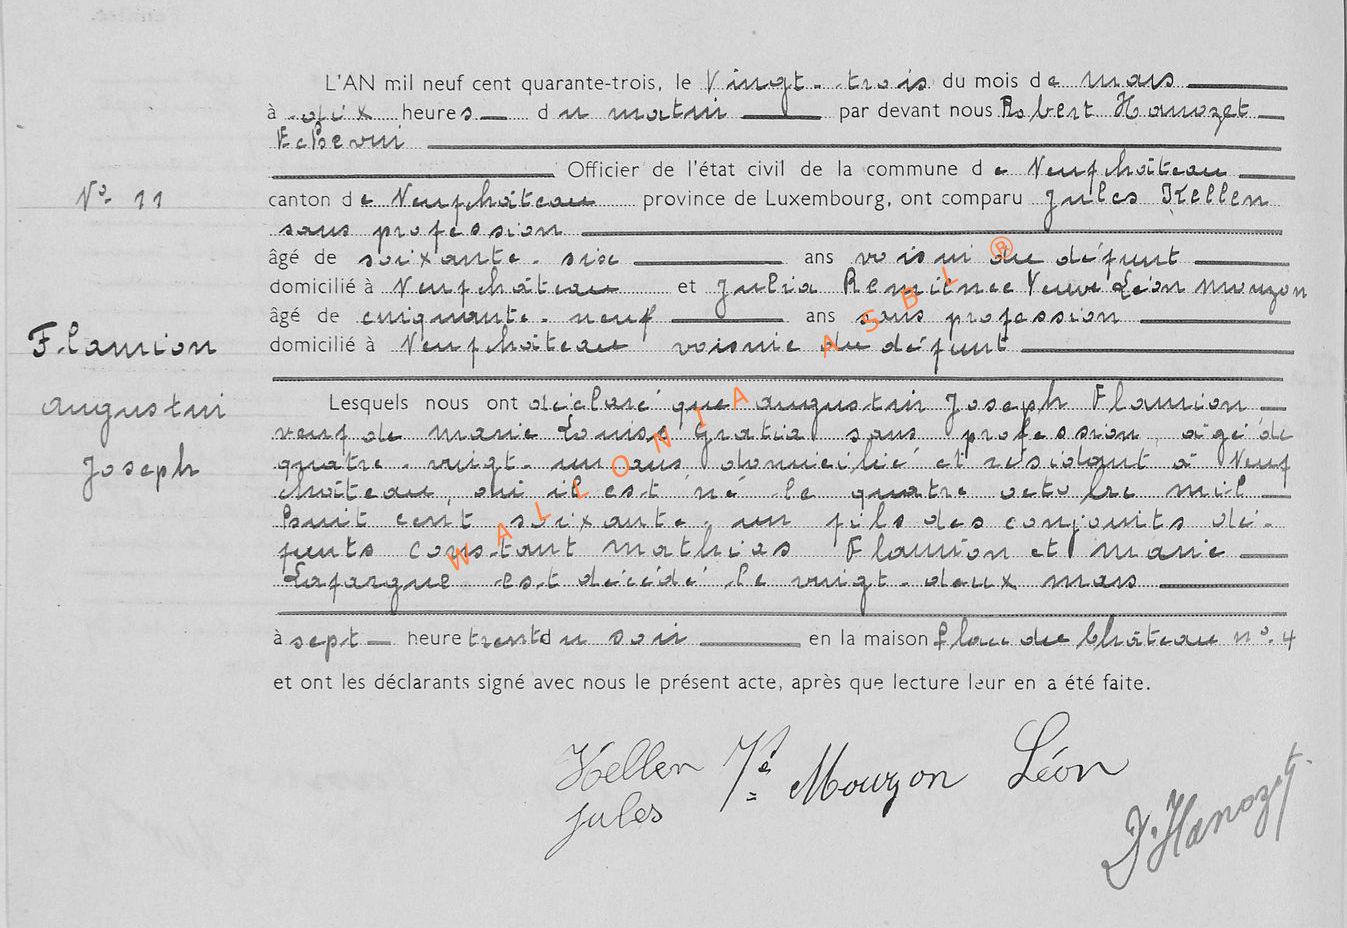 L'AN mil neuf cent quarante-trois, le Vingt-trois du mois de mars
à dix heures du matin par devant nous Robert Hanozet
Echevin
Officier de l'état civil de la commune de Neufchâteau
N° 11
canton de Neufchâteau province de Luxembourg, ont comparu Jules Kellen
sans profession
âgé de soixante-six ans voisin du défunt
domicilié à Neufchâteau et Julia Remience Veuve Léon Mouzon
âgé de cinquante-neuf ans sans profession
Flamion
domicilié à Neufchâteau voisine du défunt
Augustin
Joseph
Lesquels nous ont déclaré que Augustin Joseph Flamion
veuf de Marie Louise Gratia sans profession, âgé de
quatre-vingt-un ans domicilié et résidant à Neuf
château, où il est né le quatre octobre mil
huit cent soixante-un fils des conjoints dé-
funts Constant Mathias Flamion et Marie
Lafargue est décédé le vingt-deux mars
à sept heure trente du soir en la maison place du Château n°.4
et ont les déclarants signé avec nous le présent acte, après que lecture leur en a été faite.
Kellen Vé Mouzon Léon
Jules
Hanozet
WALLONIA ASBL ®